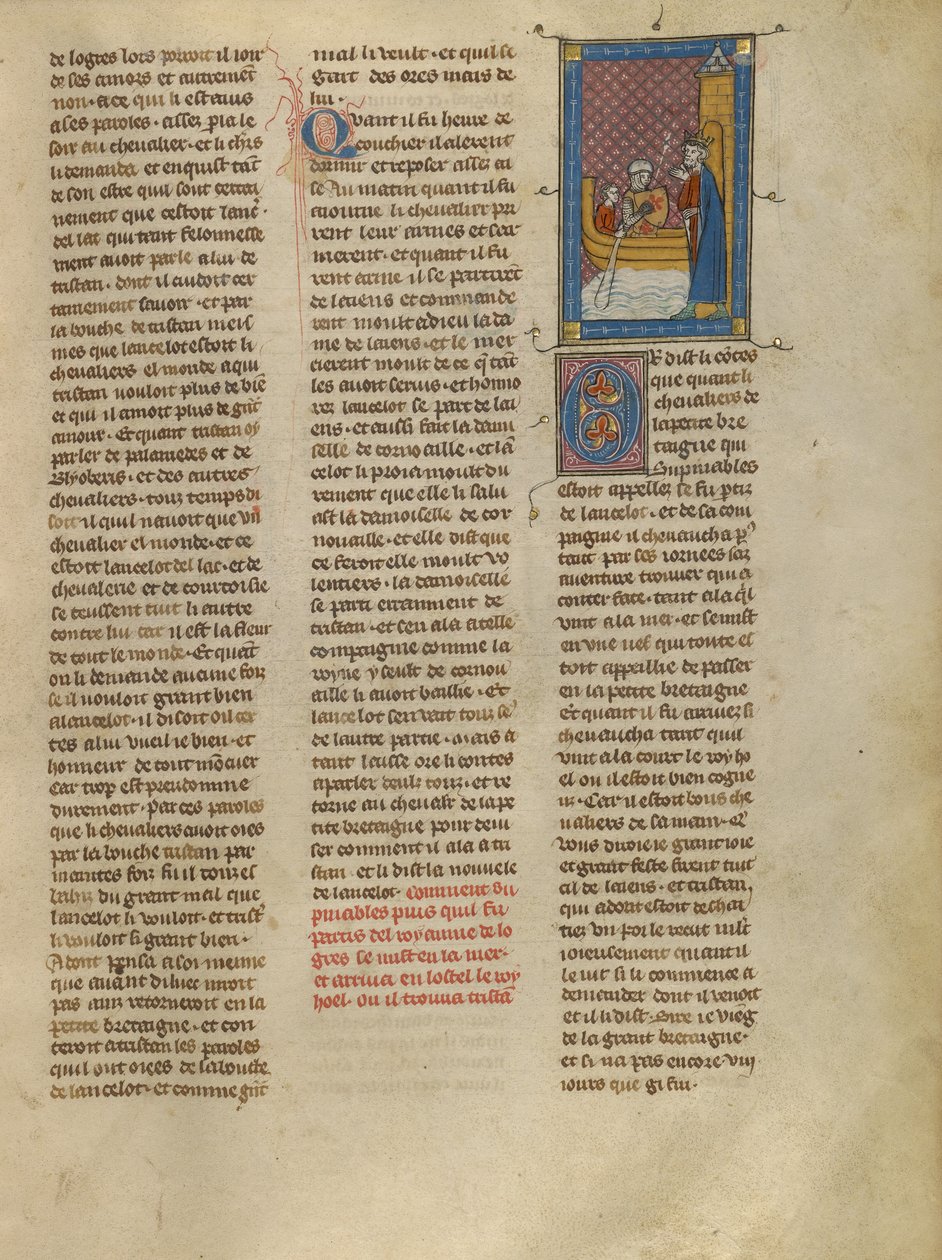 de logres lors porroit il ioir
de ses amors et autremẽt
non · a ce qui li est auis
a ses paroles · assez p̱la le
soir au cheualier · et li chr̃s
li demanda et enquist tãt
de son estre quil sout certai
nement que cestoit lanc̾·
del lac qui tant felonnesse
ment auoit parle a lui de
tristan · dont il cuidoit cer
tainement sauoir · et par
la bouche de tristan meis
mes que lancelot estoit li
cheualiers el monde a qui
tristan vouloit plus de biẽ
et qui il amoit plus de grãt
amour · Et quant tristan oy
parler de palamedes et de
Blyoberis · et des autres
cheualiers · touz temps di
soit il quil nauoit que vn
cheualier el monde · et ce
estoit lancelot del lac · et de
cheualerie et de courtoisie
se teussent tuit li autre
contre lui car il est la fleur
de tout le monde · Et quãt
on li demande aucune foiz
se il vouloit grant bien
a lancelot · il disoit oil cer
tes a lui vueil ie bien · et
honneur de tout mõ cuer
Car trop est preudomme
durement · Par ces paroles
que li cheualiers auoit oies
par la bouche tristan par
maintes foiz fu il touz es
bahiz du grant mal que
lancelot li vouloit · et trist̃
li vouloit si grant bien ·
Adont pensa a soi meime
que auant diluec niroit
pas ainz retorneroit en la
petite bretaigne · et con
teroit a tristan les paroles
quil ont oiees de la bouche
de lancelot · et comme grãt
mal li veult · et quil se
gart des ores mais de
lui ·
Quant il fu heure de
couchier il alerent
dormir et reposer assez ai
se Au matin quant il fu
aiourne li cheualier pri
rent leur armes et sar
merent · et quant il fu
rent arme il se partirẽt
de laiens et commande
rent moult a dieu la da
me de laiens · et le mer
cierent moult de ce q̃ tãt
les auoit seruis · et honno
rez lancelot se part de lai
ens · et aussi fait la dami
selle de cornoaille · et lã
celot li proia moult du
rement que elle li salu
ast la damoiselle de cor
nouaille · et elle dist que
ce feroit elle moult vo
lentiers · la damoiselle
se parti erranment de
tristan · et sen ala a telle
compaigne comme la
royne yseult de cornou
aille li auoit baillie · Et
lancelot sen vait touz se̾
de lautre partie · Mais a
tant laisse ore li contes
a parler deulz touz · et re
torne au cheualr̃ de la pe
tite bretaigne pour deui
ser comment il ala a tri
stan · et li dist la nouuele
de lancelot · Comment su
priables puis quil fu
partis del royaume de lo
gres se mist en la mer ·
et arriua en lostel le roy
hoel · ou il trouua tristã
Or dist li cõtes
que quant li
cheualiers de
la petite bre
taigne qui
Supriables
estoit appellez se fu p̱tiz
de lancelot · et de sa com
paignie il cheuaucha p̱
tant par ses iornees sãz
auenture trouuer qui a
conter face · tant a la q̃l
vint a la mer · et se mist
en vne nef qui toute es
toit appeillie de passer
en la petite bretaigne
Et quant il fu arriuez si
cheuaucha tant quil
vint a la court le roy ho
el ou il estoit bien cogne
uz · Car il estoit bons che
ualiers de sa main · Et
vous diroie ie grant ioie
et grant feste firent tuit
cil de laiens · et tristan
qui adont estoit de chai
tiez vn poi le recut mlt̃
ioieusement quant il
le uit si li commence a
demander dont il venoit
et il li dist · Sire ie vieg̃
de la grant bretaigne ·
et si na pas encore viij
iours que gi fui ·